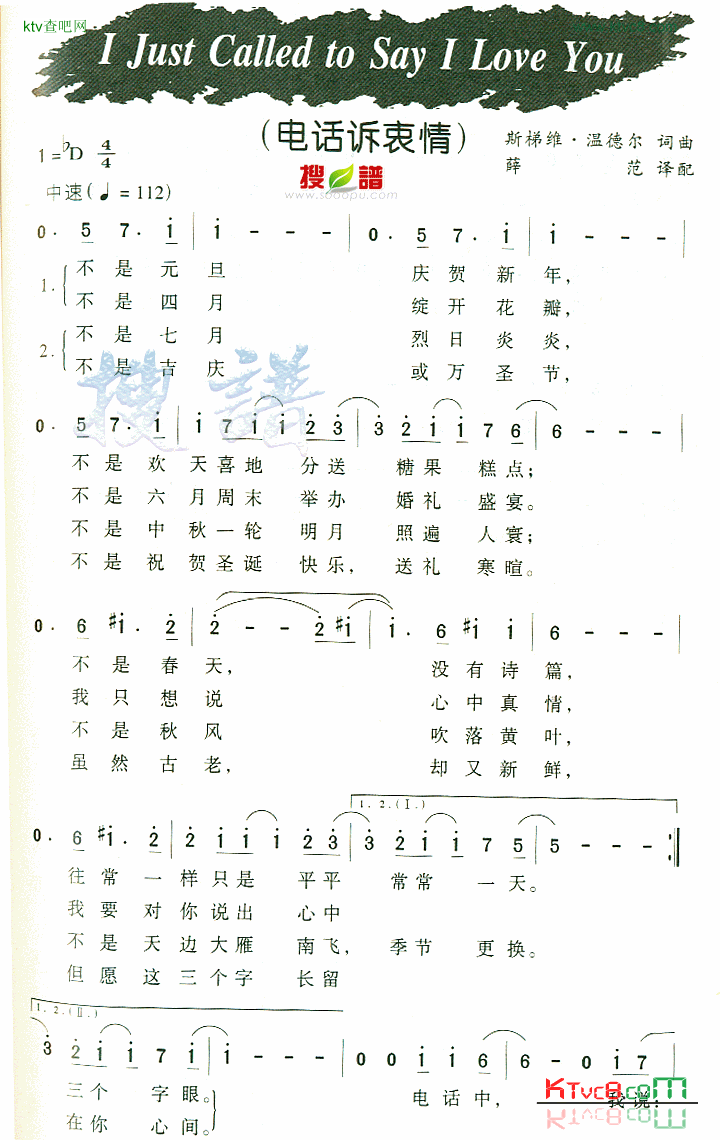 ktv查吧网
I Just Called to Say I Love You
(电话诉衷情)
斯梯维·温德尔 词曲
薛 范 译配
1=♭D 4/4
中速(♩=112)
搜谱
www.sooopu.com
0. 5 7. i | i - - - | 0. 5 7. i | i - - - |
1. 不是元旦 庆贺新年,
不是四月 绽开花瓣,
2. 不是七月 烈日炎炎,
不是吉庆 或万圣节,
搜谱
0. 5 7. i | i 7 i i 2 3 | 3 2 i i 7 6 | 6 - - - |
不是欢天喜地 分送 糖果 糕点;
不是六月周末 举办 婚礼 盛宴。
不是中秋一轮 明月 照遍 人寰;
不是祝贺圣诞 快乐, 送礼 寒暄。
0. 6 #i. 2 | 2 - - 2 #i | i. 6 #i i | 6 - - - |
不是春天, 没有诗篇,
我只想说 心中真情,
不是秋风 吹落黄叶,
虽然古老, 却又新鲜,
1. 2.(I.)
0. 6 #i. 2 | 2 i i i 2 3 | 3 2 i i 7 5 | 5 - - - :||
往常一样只是 平平 常常 一天。
我要对你说出 心中
不是天边大雁 南飞, 季节 更换。
但愿这三个字 长留
1. 2.(II.)
3 2 i i 7 i | i - - - | 0 0 i i 6 | 6 - 0 i 7 |
三个 字眼。 电话中, 我说:
在你 心间。
KTvc8.com